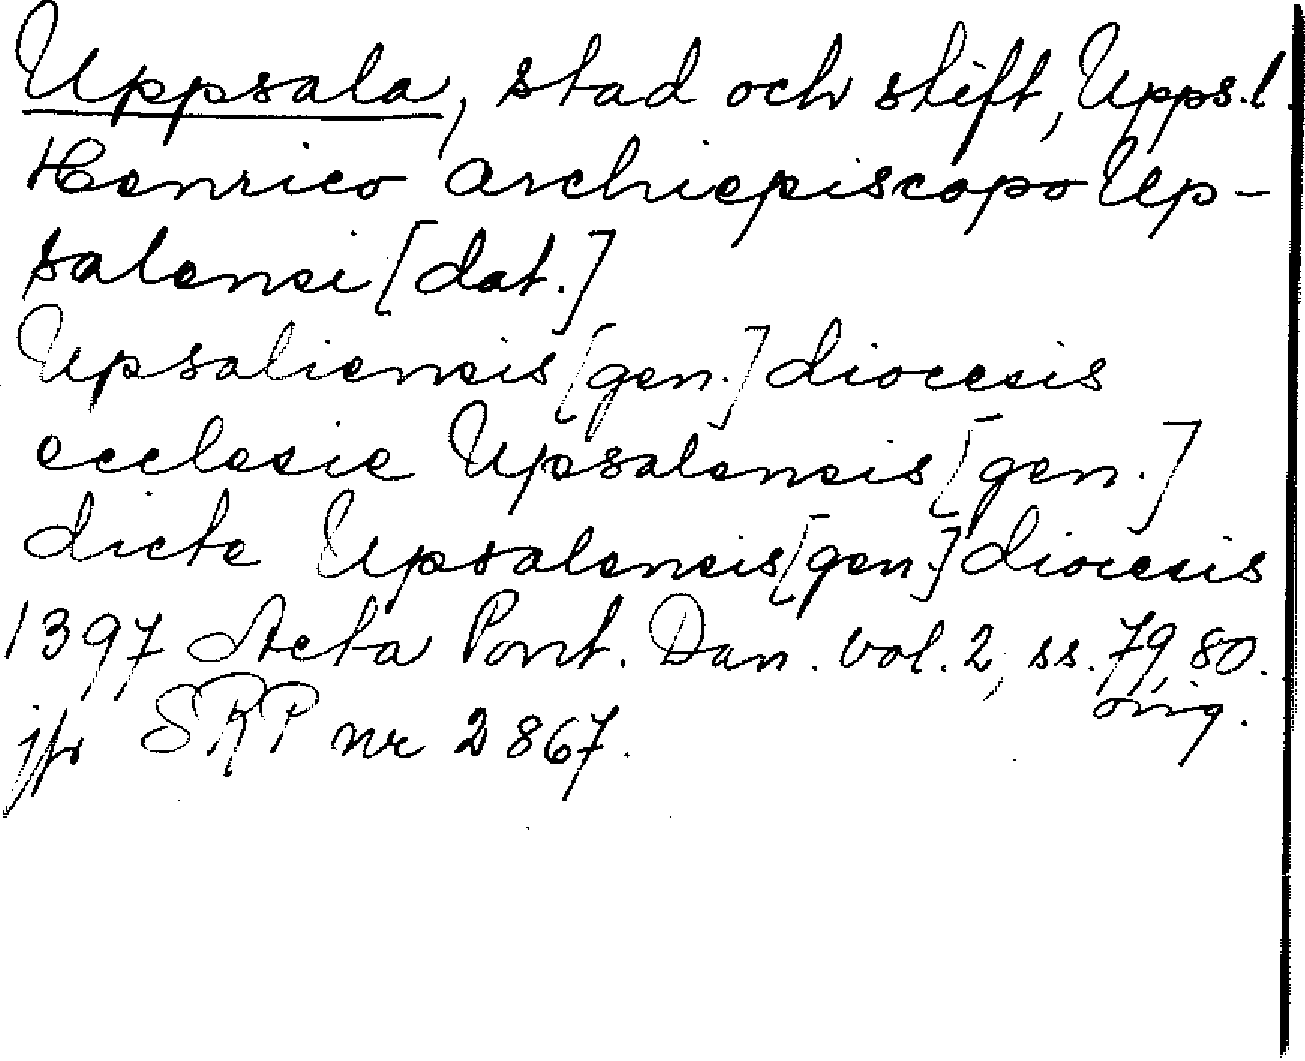 Uppsala, stad och stift, Upps.l.
Henrico archiepiscopo Up-
salensi [dat.]
Upsaliensis [gen.] diocesis
ecclesie Upsalensis [gen.]
dicte Upsalensis [gen.] diocesis
1397 Acta Pont. Dan. vol. 2, ss. 79, 80.
orig.
jfr SRP nr 2867.